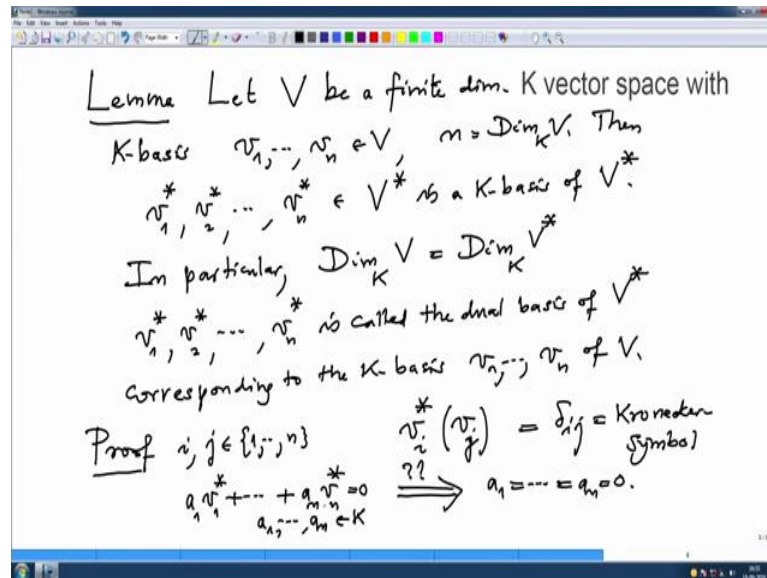 Lemma Let V be a finite dim. K vector space with
K-basis v_1, ..., v_n ∈ V, n = Dim_K V. Then
v_1^*, v_2^*, ..., v_n^* ∈ V^* is a K-basis of V^*.
In particular, Dim_K V = Dim_K V^*
v_1^*, v_2^*, ..., v_n^* is called the dual basis of V^*
corresponding to the K-basis v_1, ..., v_n of V.
Proof i, j ∈ {1, .., n} v_i^* (v_j) = δ_ij = Kronecker
Symbol
a_1 v_1^* + ... + a_n v_n^* = 0 ??⟹ a_1 = ... = a_n = 0.
a_1, ..., a_n ∈ K